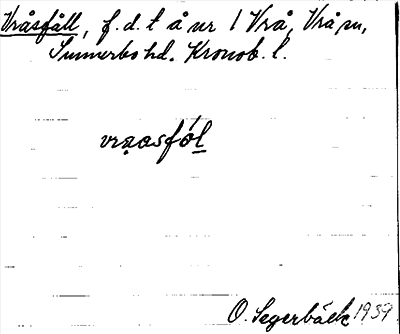 Vråsfåll, f.d. t å nr 1 Vrå, Vrå sn,
Sunnerbo hd. Kronob. l.
vrasfól
O. Segerbäck 1939